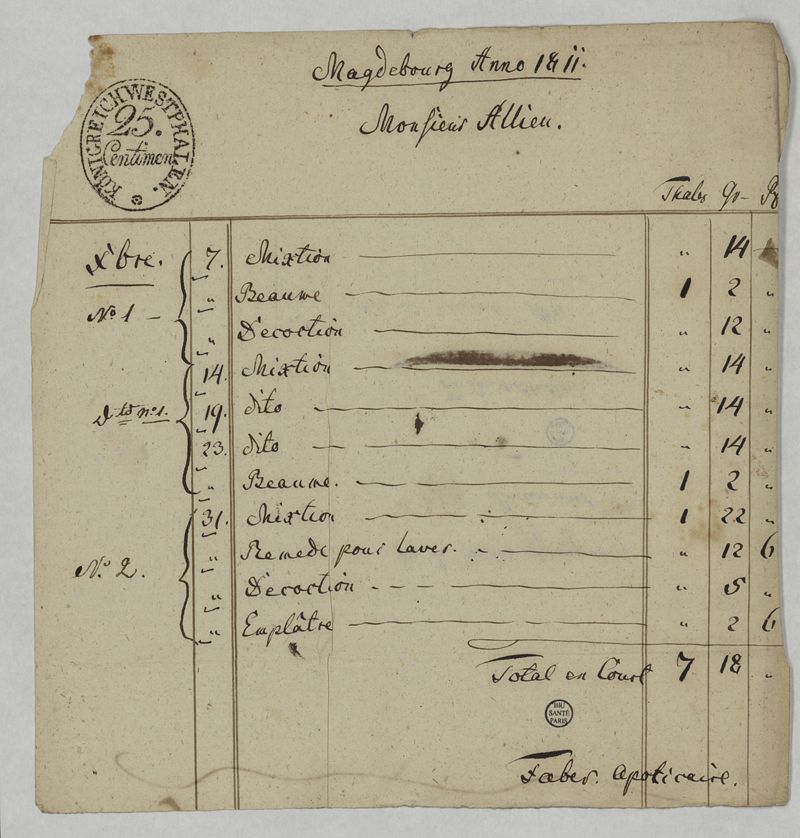 Magdebourg Anno 1811.
KÖNIGREICH WESTPHALEN.
25.
Centimen
Monsieur Allieu.
Thales Gr
Xbre. 7. Mixtion " 14
" Beaume 1 2 "
No 1 — " Décoction " 12 "
14. Mixtion " 14 "
dto no 1. 19. dito " 14 "
23. dito " 14 "
" Beaume. 1 2 "
31. Mixtion 1 22 "
" Remede pour laver. " 12 6
No 2. " Décoction " 5 "
" Emplâtre " 2 6
Total en Court 7 18 "
BIU
SANTÉ
PARIS
Faber. apoticaire.